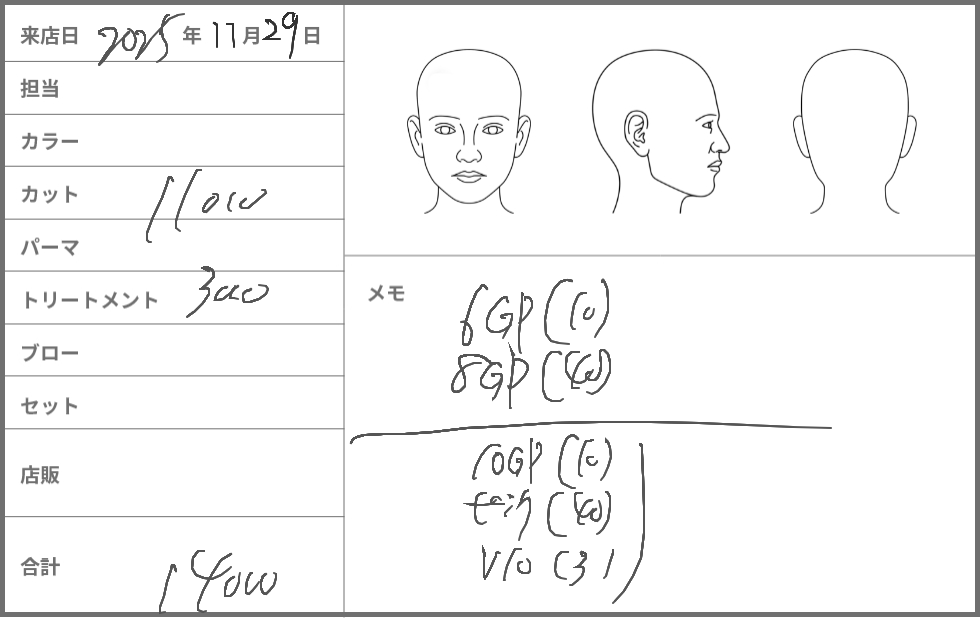 来店日 2025年11月29日
担当
カラー
カット 11000
パーマ
トリートメント 3000
ブロー
セット
店販
合計 14000
メモ
6GP (10)
8GP (40)
10GP (10)
V10 (3)